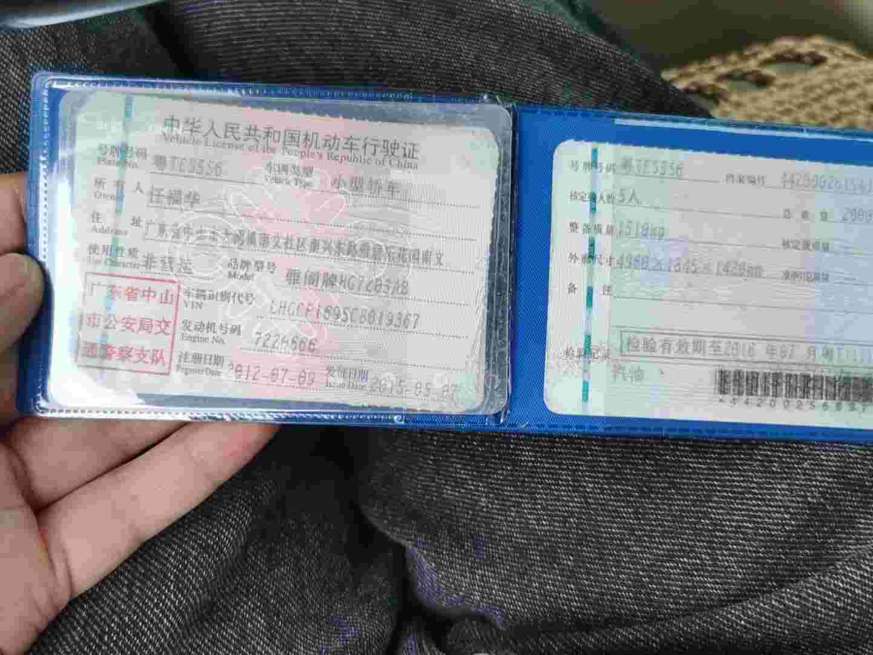 中华人民共和国机动车行驶证
Vehicle License of the People's Republic of China
号牌号码 粤TE5556 车辆类型 小型轿车
Plate No. Vehicle Type
所有人 任福华
Owner
住址 广东省中山市
Address
使用性质 非营运 品牌型号 雅阁牌HG7203AB
Use Character Model
广东省中山
市公安局交
通警察支队
车辆识别代号
VIN
发动机号码 7226666
Engine No.
注册日期 2012-07-09 发证日期 2015-05-07
Register Date Issue Date
号牌号码 粤TE5556 档案编号
核定载人数 5人 总质量
整备质量 1518kg 核定载质量
外廓尺寸
备注
检验记录 检验有效期至2016年07月
汽油